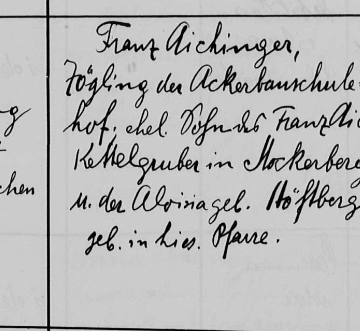 Franz Aichinger,
Zögling der Ackerbauschule
hof; ehel. Sohn des Franz Aic
g
Kettelgruber in Mockerberg
chen
u. der Aloisia geb. Höftberg
geb. in hies. Pfarre.